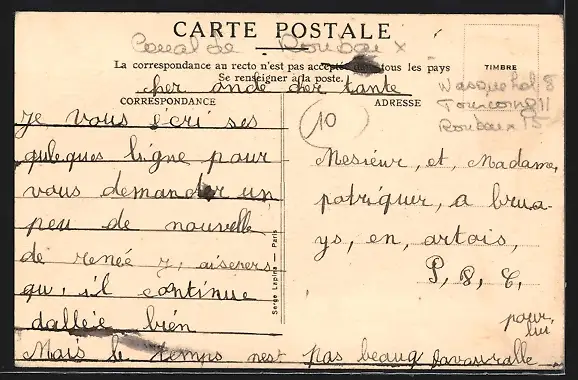 CARTE POSTALE
Canal de Roubaix
La correspondance au recto n'est pas acceptée dans tous les pays
Se renseigner à la poste.
TIMBRE
Wasquehal 8
Tourcoing 11
Roubaix 15
cher oncle cher tante
CORRESPONDANCE
ADRESSE
10
Je vous écri ses
quleques ligne pour
vous demander un
peu de nouvelle
de renée
qu, il continue
dallée bién
Mais le temps nest pas beaux
Mesieur, et, Madame,
patriquer, a brua-
ys, en, artois,
P, D, C,
pour,
lui
Serge Lapina — Paris